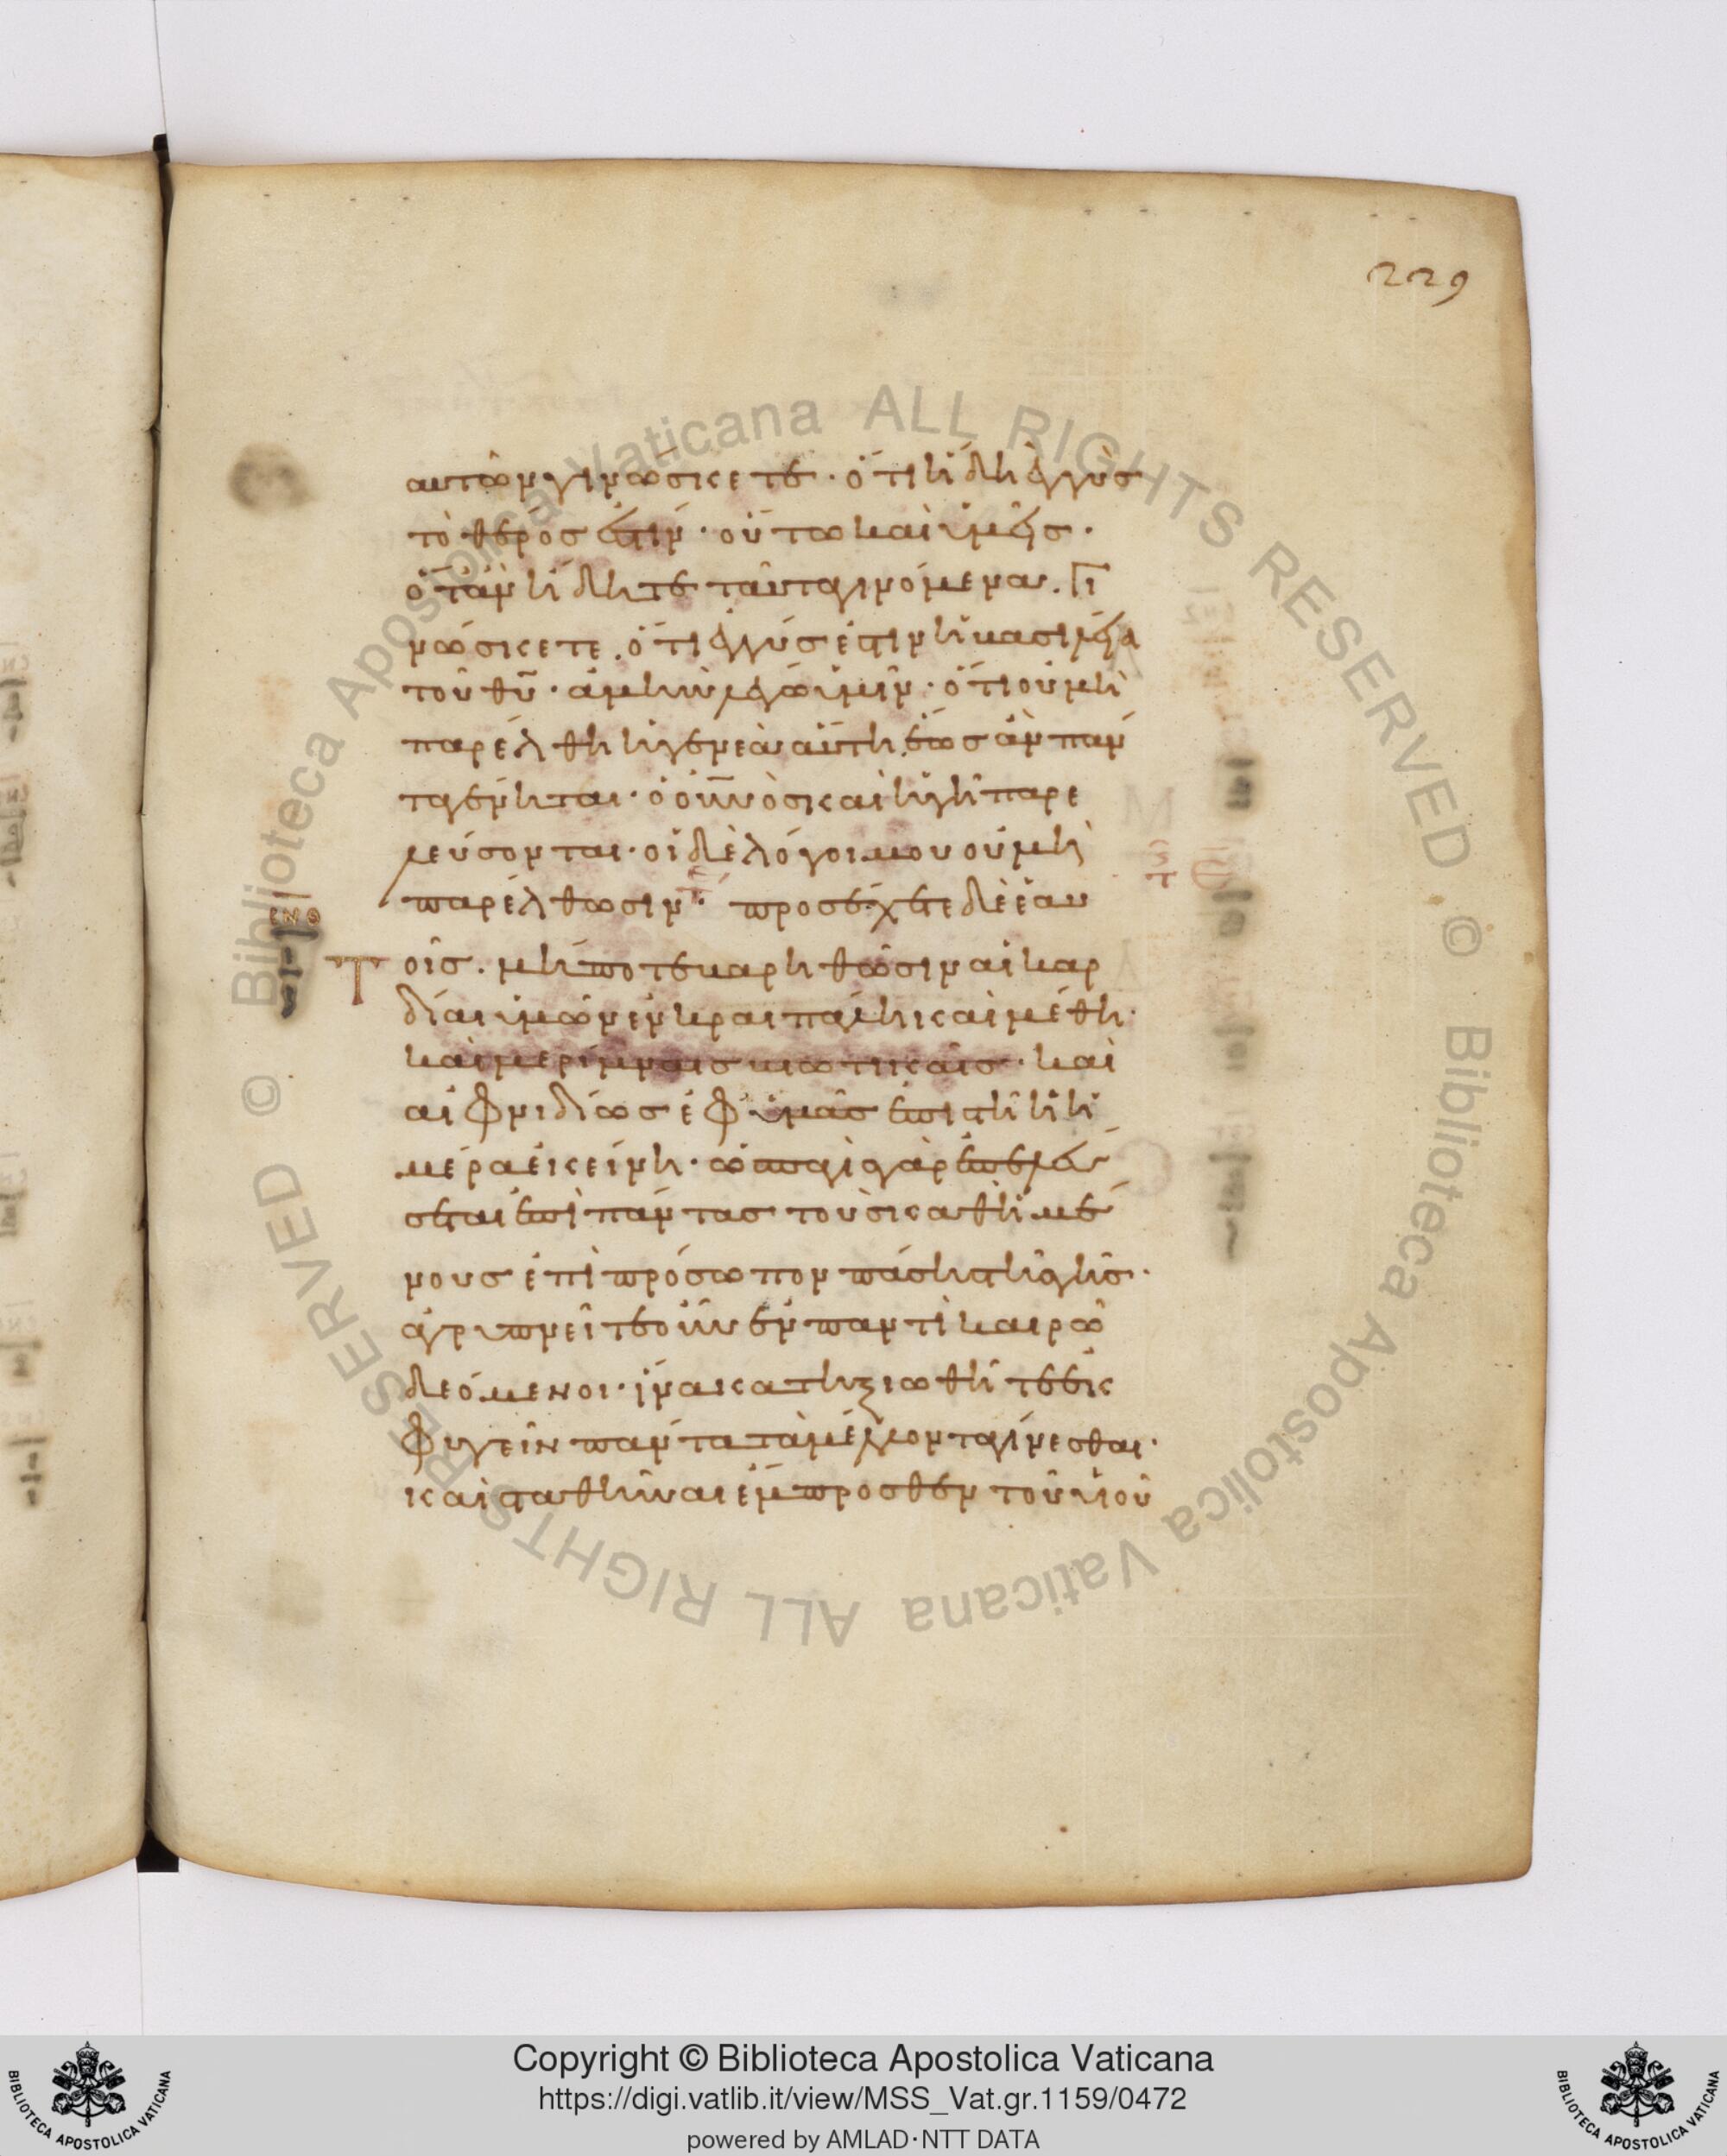 229
αυτῶν γινώσκετε · ὅτι ἤδη ἐγγὺσ
τὸ θέροσ ἐστίν · οὕτω καὶ ὑμεῖσ ·
ὅταν ἴδητε ταῦτα γινόμενα · γι
νώσκετε · ὅτι ἐγγύσ ἐστιν ἡ βασιλεία
τοῦ θ̅υ̅ · ἀμὴν λέγω ὑμῖν · ὅτι οὐ μὴ
παρέλθη ἡ γενεὰ αὕτη ἕωσ ἂν πάν
τα γένηται · ὁ οὐ̅ν̅ὸσ καὶ ἡ γῆ παρε
λεύσονται · οἱ δὲ λόγοι μου οὐ μὴ
παρέλθωσιν · προσέχετε δὲ ἑαυ
τοῖσ · μήποτε βαρηθῶσιν αἱ καρ
δίαι ὑμῶν ἐν κραιπάλη καὶ μέθη ·
καὶ μερίμναισ βιωτικαῖσ · καὶ
αἰφνιδίωσ ἐφ ὑμᾶσ ἐπιστῆ ἡ ἡ
μέρα ἐκείνη · ὡσ παγὶσ γὰρ ἐπελεύ
σεται ἐπὶ πάντασ τοὺσ καθημέ
νουσ ἐπὶ πρόσωπον πάσησ τῆσ γῆσ ·
ἀγρυπνεῖτε οὖν ἐν παντὶ καιρῶ
δεόμενοι · ἵνα καταξιωθῆτε ἐκ
φυγεῖν πάντα τὰ μέλλοντα γίνεσθαι ·
καὶ σταθῆναι ἔμπροσθεν τοῦ υἱοῦ
© Biblioteca Apostolica Vaticana ALL RIGHTS RESERVED © Biblioteca Apostolica Vaticana ALL RIGHTS RESERVED
Copyright © Biblioteca Apostolica Vaticana
https://digi.vatlib.it/view/MSS_Vat.gr.1159/0472
powered by AMLAD·NTT DATA
BIBLIOTECA APOSTOLICA VATICANA
BIBLIOTECA APOSTOLICA VATICANA